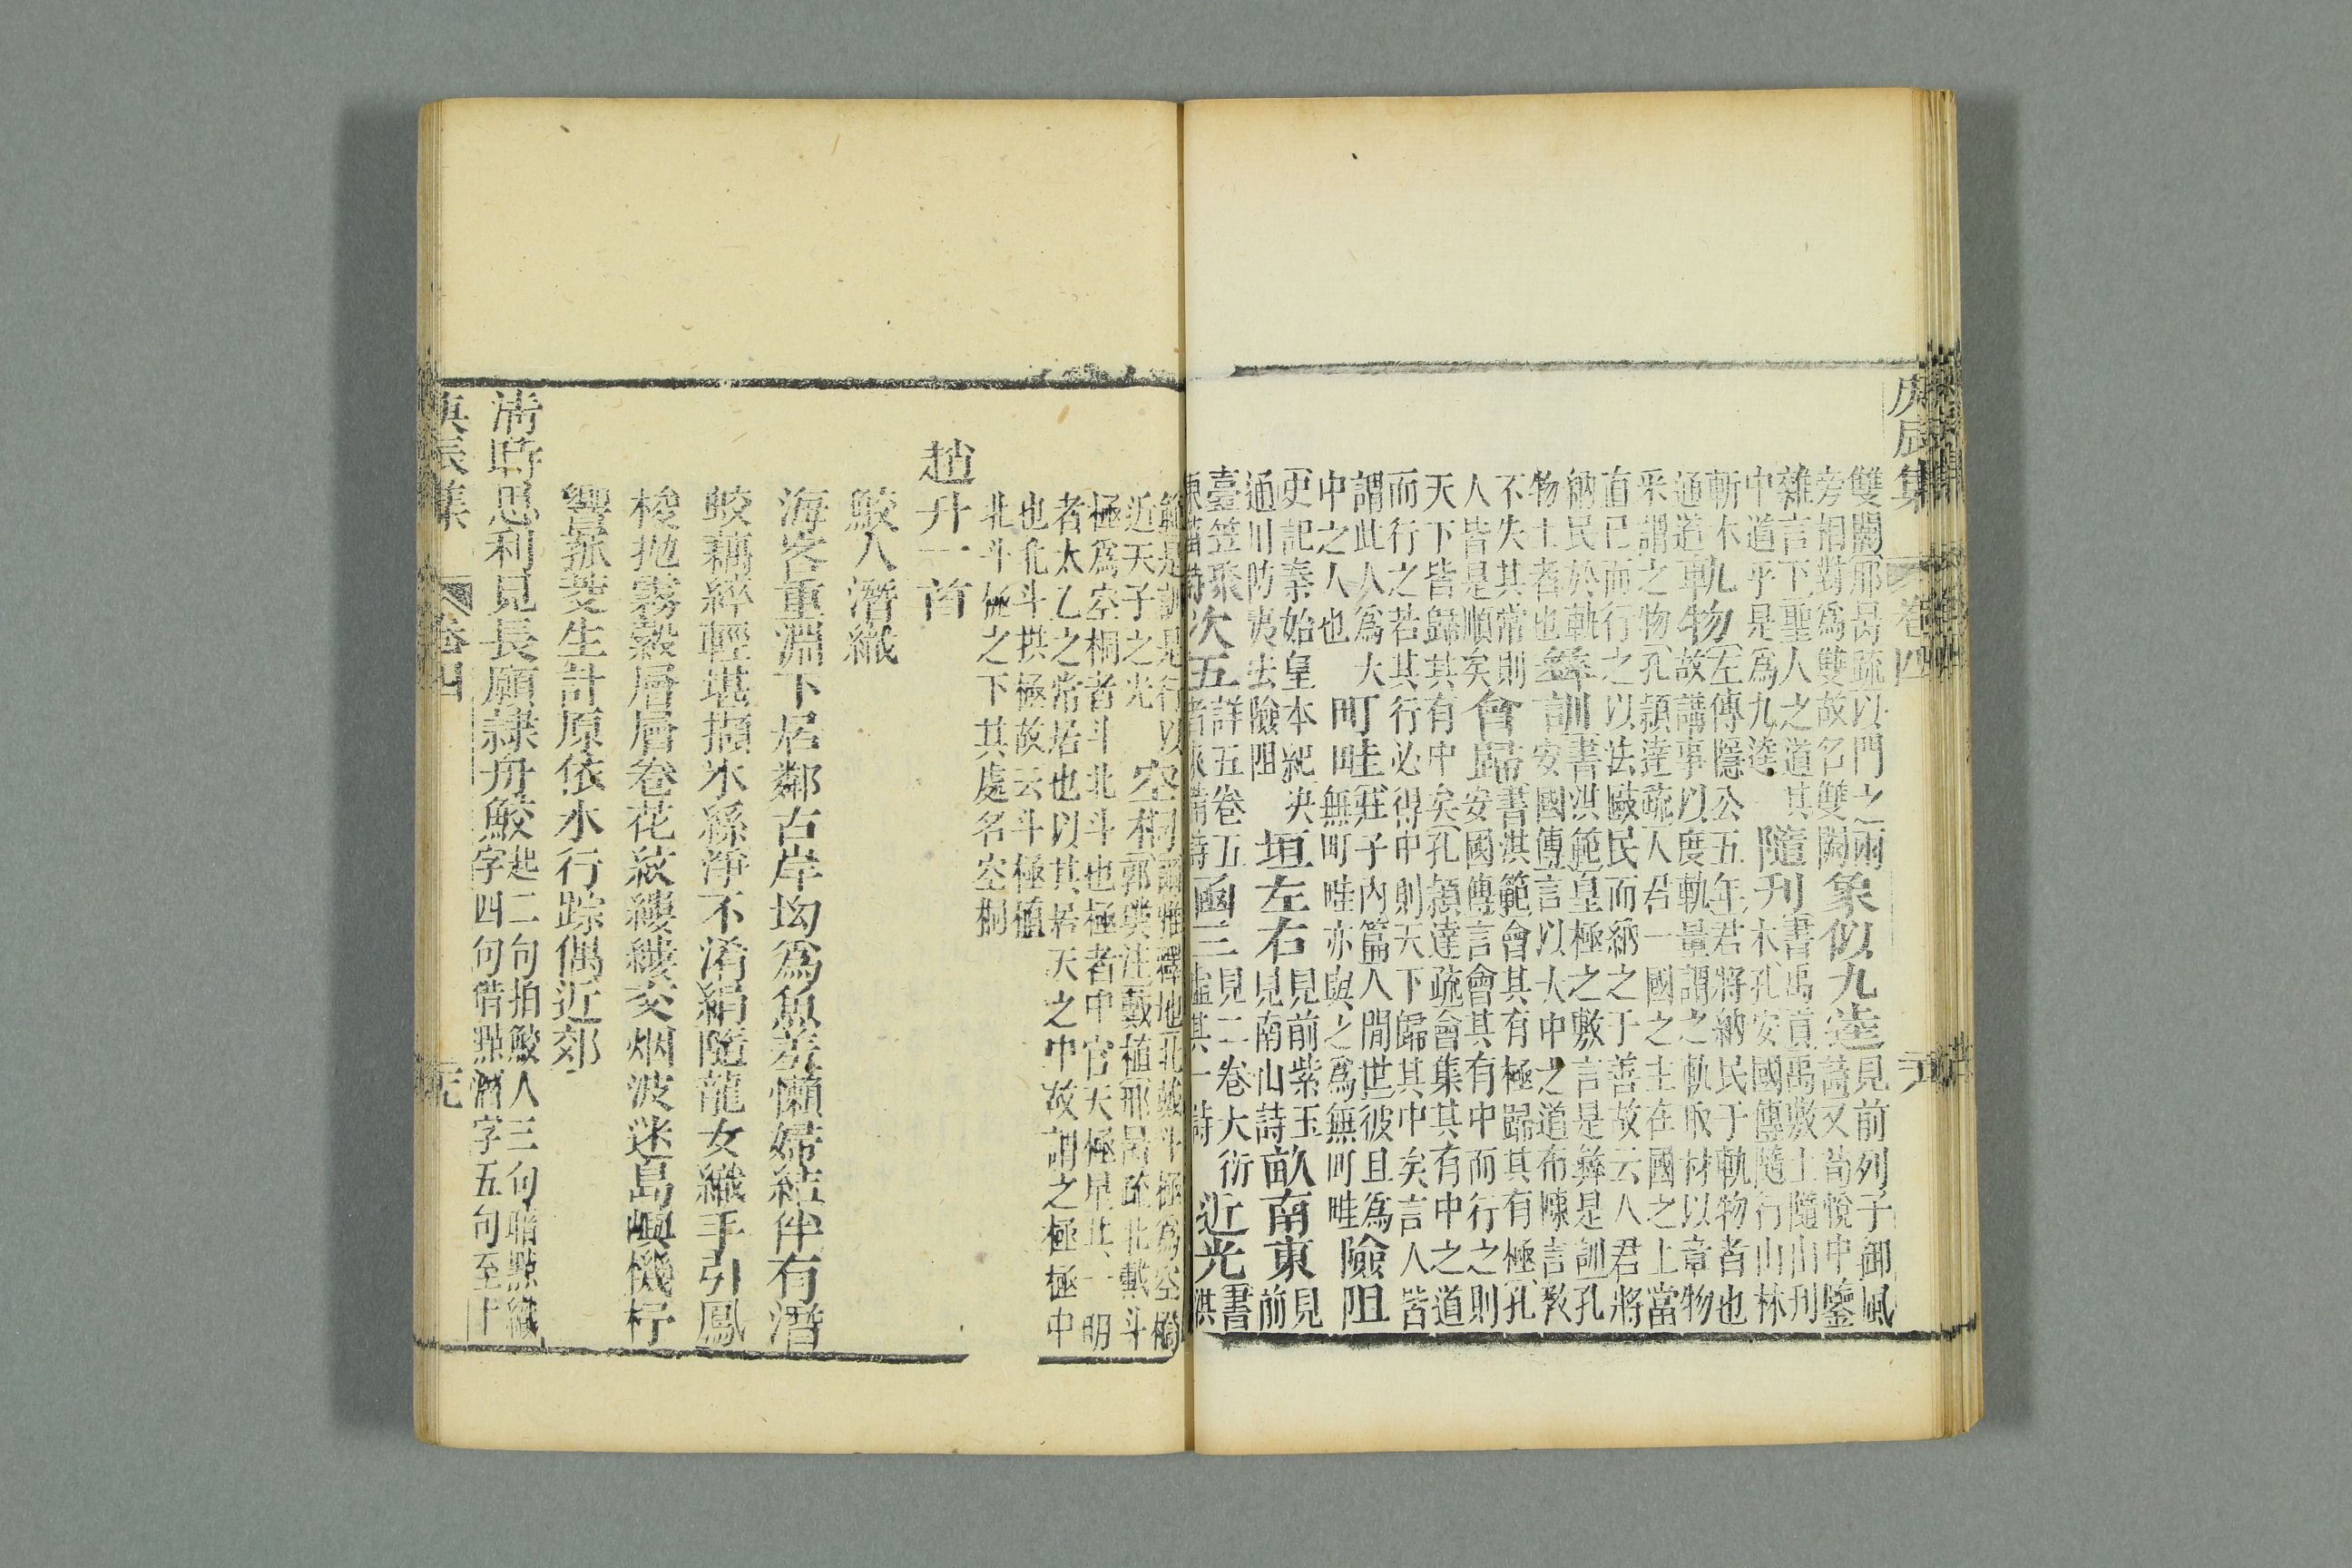 庚辰集 卷四
雙闕邢昺疏以門之兩
旁相對爲雙故名雙闕
象似九逵
見前列子御風
詩又荀悅申鑒
雜言下聖人之道其
中道乎是爲九逵
隨刊
書禹貢禹敷土隨山刊
木孔安國傳隨行山林
斬木
軌物
左傳隱公五年君將納民于軌物者也
通道
故講事以度軌量謂之軌取材以章物
采謂之物孔穎達疏人君一國之主在國之上當
直已而行之以法歐民而納之于善故云人君將
納民於軌
物土者也
彝訓
書洪範皇極之敷言是彝是訓孔
安國傳言以大中之道布陳言敎
不失其常則
人皆是順矣
會歸
書洪範會其有極歸其有極孔
安國傳言會其有中而行之則
天下皆歸其有中矣孔穎達疏會集其有中之道
而行之若其行必得中則天下歸其中矣言人皆
謂此人爲大
中之人也
町畦
莊子內篇人間世彼且爲
無町畦亦與之爲無町畦
險阻
史記秦始皇本紀決
通川防夷去險阻
垣左右
見前紫玉
見南山詩
畝南東
見前
臺笠聚
次五
詳五卷五
函三
見二卷大衍
近光
書
範是訓是行以
近天子之光
空桐
爾雅釋地北戴斗極爲空桐
郭璞注戴植邢昺疏北戴斗
極爲空桐者斗北斗也極者中宮天極星其一明
者太乙之常居也以其居天之中故謂之極極中
也北斗拱極故云斗極植
北斗極之下其處名空桐
趙升一首
鮫人潛織
海客重淵下居鄰古岸坳爲魚羞懶婦結伴有潛
蛟藕綷輕堪擷氷絲淨不淆絹隨龍女織手引鳳
梭抛霧縠層層卷花紋縷縷交烟波迷島嶼機杼
響
生計原依水行踪偶近郊
清時思利見長願隷舟鮫
起二句拍鮫人三句暗點織
字四句借點潛字五句至十
庚辰集 卷四